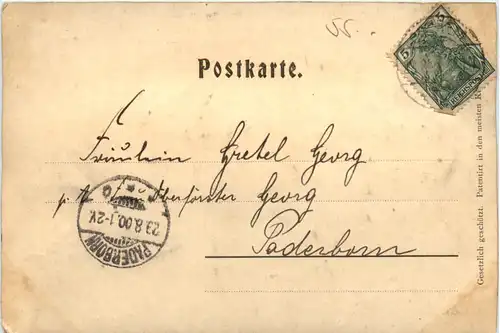 55.
Postkarte.
Fräulein Gretel Georg
Oberförster Georg
Paderborn
PADERBORN
23.8.00.1-2V.
5
Gesetzlich geschützt. Patentirt in den meisten